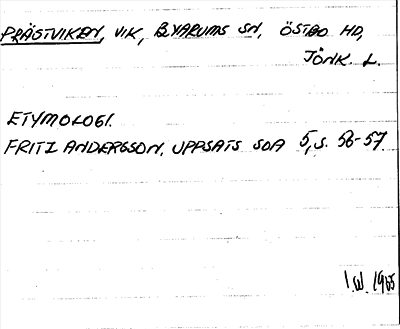 PRÄSTVIKEN, VIK, BYARUMS SN, ÖSTBO HD,
JÖNK. L.
ETYMOLOGI.
FRITZ ANDERSSON, UPPSATS SOA 5, S. 56-57.
I.W. 1965